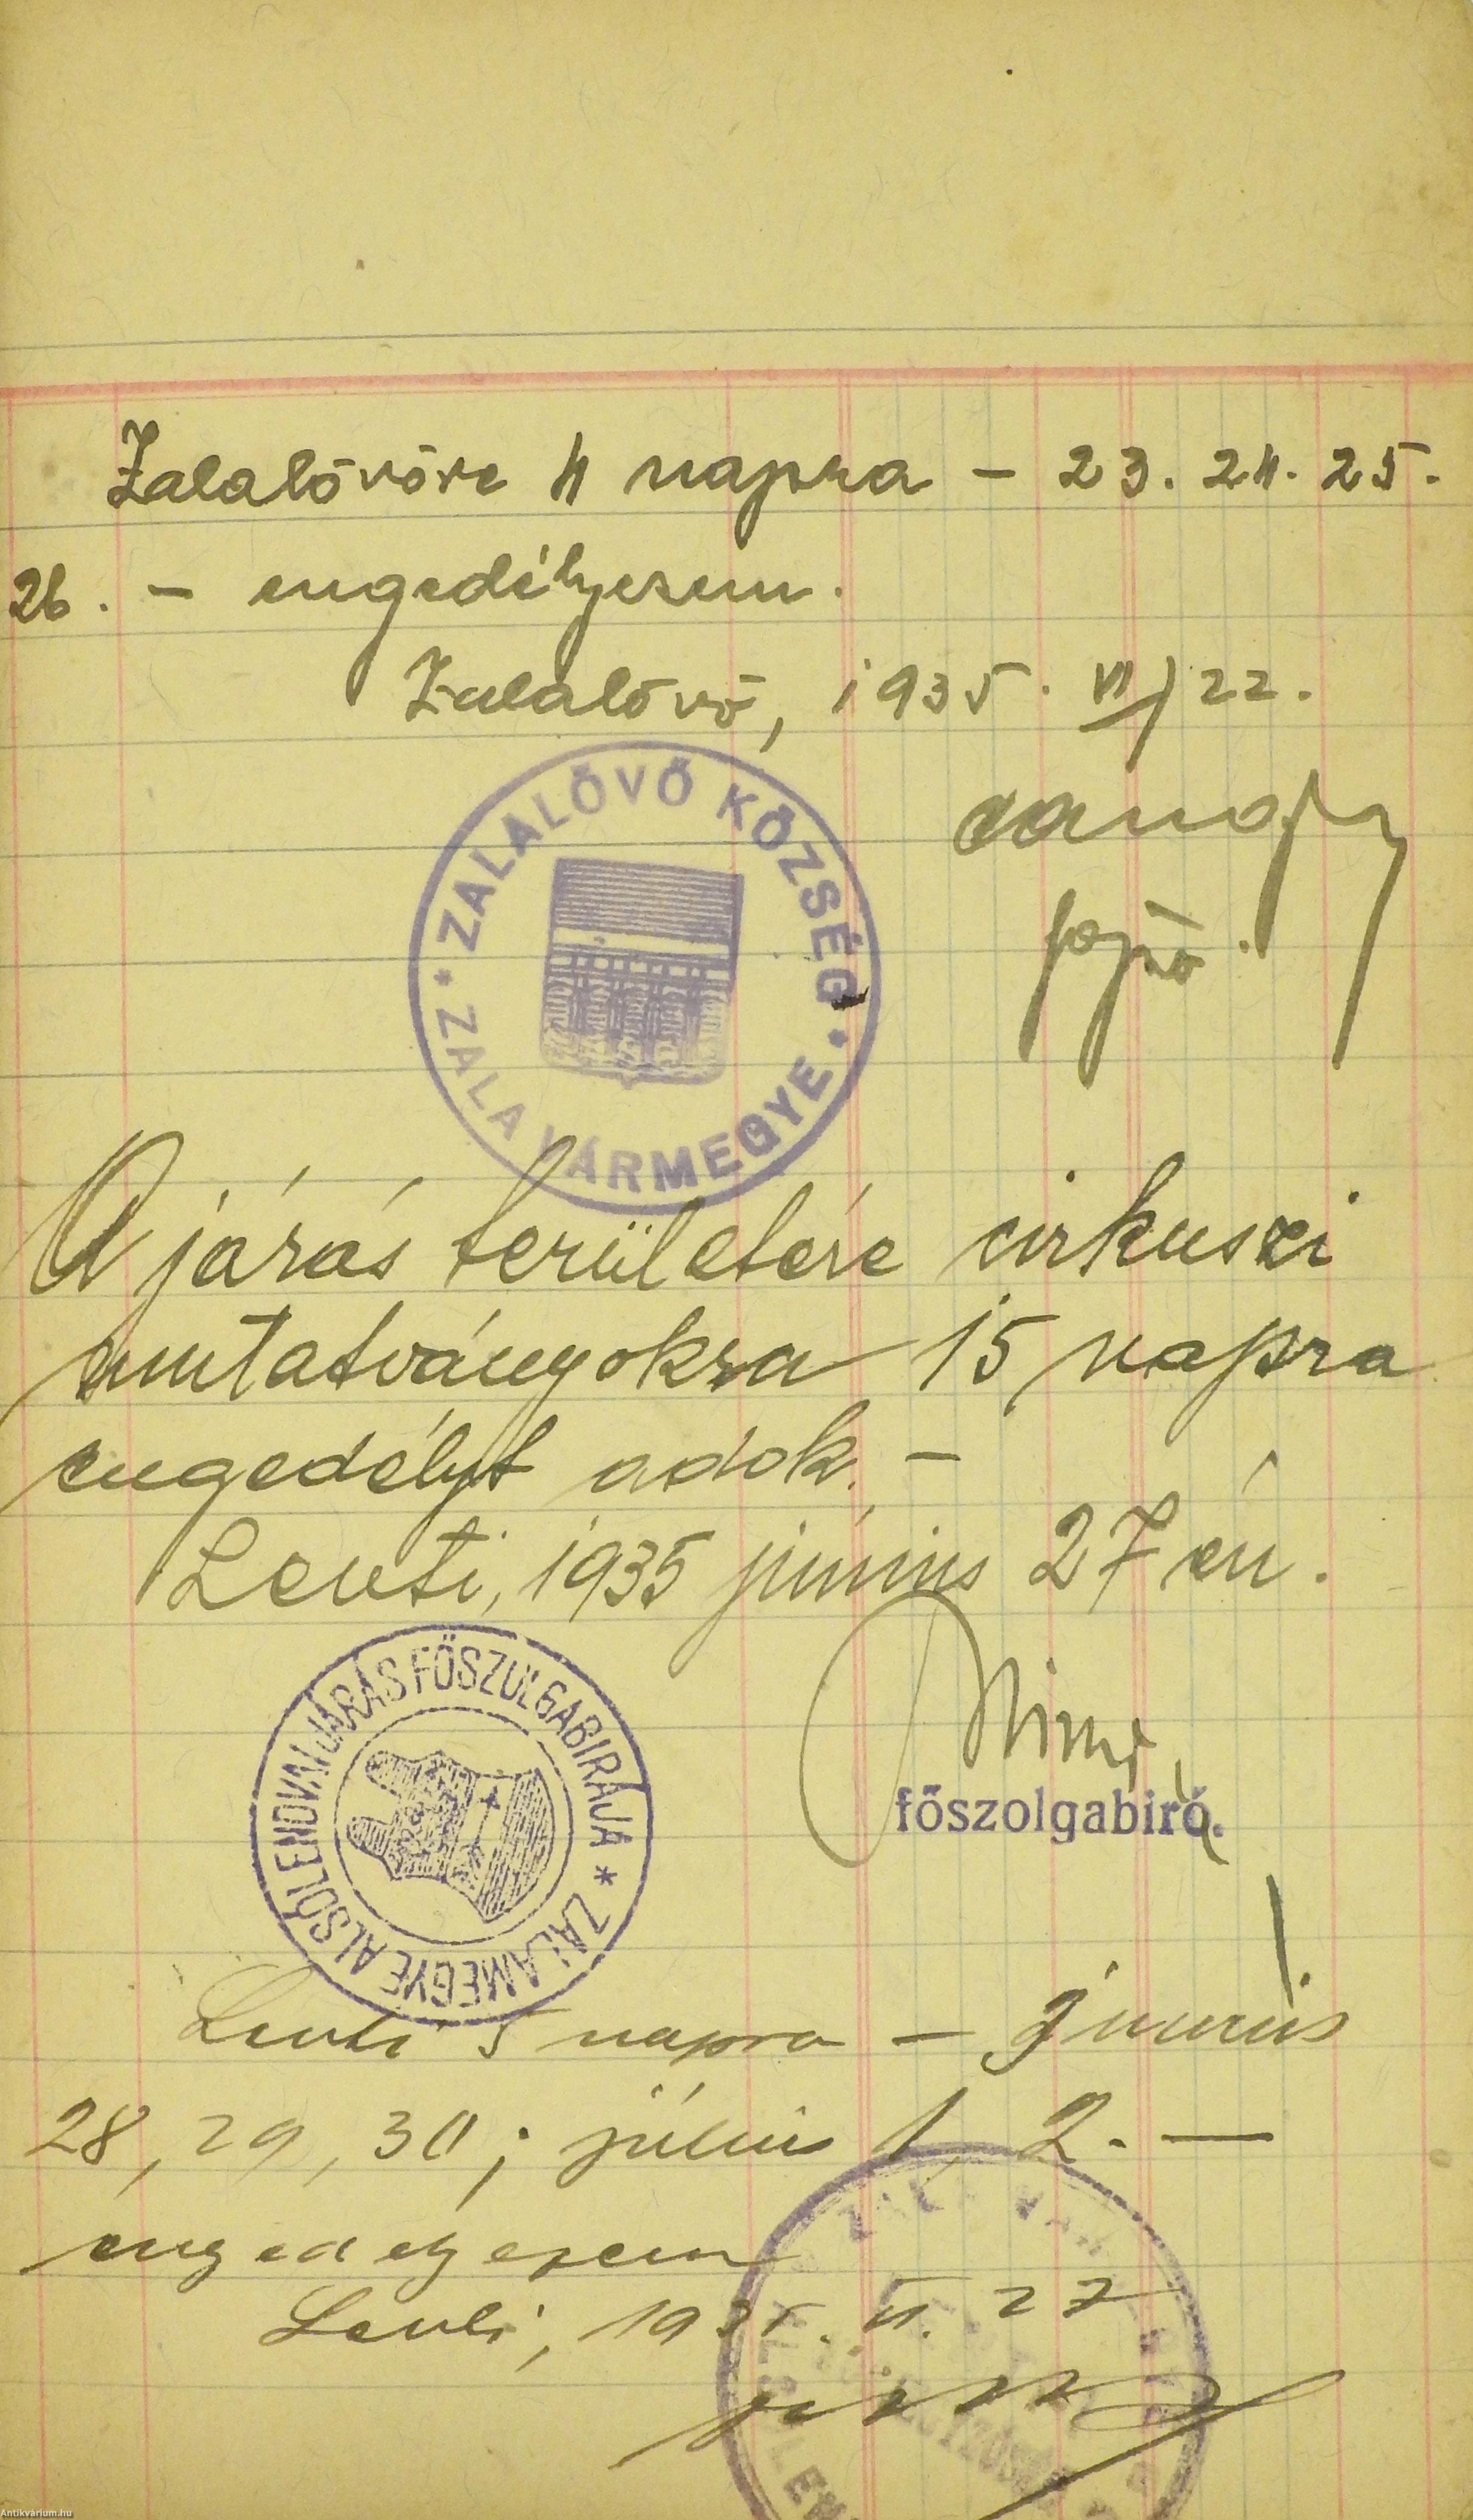 Zalalövőre 4 napra – 23. 24. 25.
26. – engedélyezem.
Zalalövő, 1935. VI/22.
ZALALÖVŐ KÖZSÉG
ZALA VÁRMEGYE
A járás területére cirkuszi
mutatványokra 15 napra
engedélyt adok. –
Lenti, 1935 június 27 én.
főszolgabiró.
ZALAMEGYE ALSÓLENDVAI JÁRÁS FŐSZOLGABIRÁJA
Lenti 5 napra – Június
28, 29, 30; július 1, 2. —
engedélyezem
Lenti, 1935. VI. 27
Antikvarium.hu